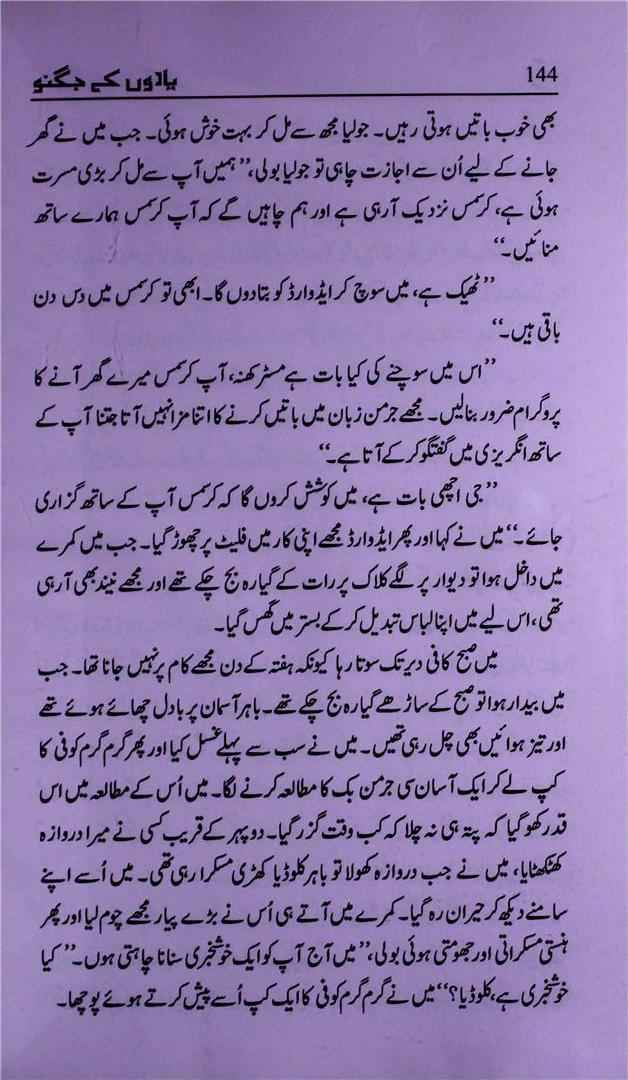 144
یادوں کے جگنو
بھی خوب باتیں ہوتی رہیں۔ جولیا مجھ سے مل کر بہت خوش ہوئی۔ جب میں نے گھر
جانے کے لیے اُن سے اجازت چاہی تو جولیا بولی،’’ہمیں آپ سے مل کر بڑی مسرت
ہوئی ہے، کرسمس نزدیک آرہی ہے اور ہم چاہیں گے کہ آپ کرسمس ہمارے ساتھ
منائیں۔‘‘
’’ٹھیک ہے، میں سوچ کر ایڈوارڈ کو بتادوں گا۔ ابھی تو کرسمس میں دس دن
باقی ہیں۔‘‘
’’اس میں سوچنے کی کیا بات ہے مسٹر کھنہ، آپ کرسمس میرے گھر آنے کا
پروگرام ضرور بنالیں۔ مجھے جرمن زبان میں باتیں کرنے کا اتنا مزا نہیں آتا جتنا آپ کے
ساتھ انگریزی میں گفتگو کرکے آتا ہے۔‘‘
’’جی اچھی بات ہے، میں کوشش کروں گا کہ کرسمس آپ کے ساتھ گزاری
جائے۔‘‘ میں نے کہا اور پھر ایڈوارڈ مجھے اپنی کار میں فلیٹ پر چھوڑ گیا۔ جب میں کمرے
میں داخل ہوا تو دیوار پر لگے کلاک پر رات کے گیارہ بج چکے تھے اور مجھے نیند بھی آرہی
تھی، اس لیے میں اپنا لباس تبدیل کرکے بستر میں گھس گیا۔
میں صبح کافی دیر تک سوتا رہا کیونکہ ہفتہ کے دن مجھے کام پر نہیں جانا تھا۔ جب
میں بیدار ہوا تو صبح کے ساڑھے گیارہ بج چکے تھے۔ باہر آسمان پر بادل چھائے ہوئے تھے
اور تیز ہوائیں بھی چل رہی تھیں۔ میں نے سب سے پہلے غسل کیا اور پھر گرم گرم کوفی کا
کپ لے کر ایک آسان سی جرمن بک کا مطالعہ کرنے لگا۔ میں اُس کے مطالعہ میں اس
قدر کھو گیا کہ پتہ ہی نہ چلا کہ کب وقت گزر گیا۔ دوپہر کے قریب کسی نے میرا دروازہ
کھٹکھٹایا، میں نے جب دروازہ کھولا تو باہر کلوڈیا کھڑی مسکرا رہی تھی۔ میں اُسے اپنے
سامنے دیکھ کر حیران رہ گیا۔ کمرے میں آتے ہی اُس نے بڑے پیار مجھے چوم لیا اور پھر
ہنستی مسکراتی اور جھومتی ہوئی بولی،’’میں آج آپ کو ایک خوشخبری سنانا چاہتی ہوں۔‘‘ ’’کیا
خوشخبری ہے، کلوڈیا؟‘‘ میں نے گرم گرم کوفی کا ایک کپ اُسے پیش کرتے ہوئے پوچھا۔